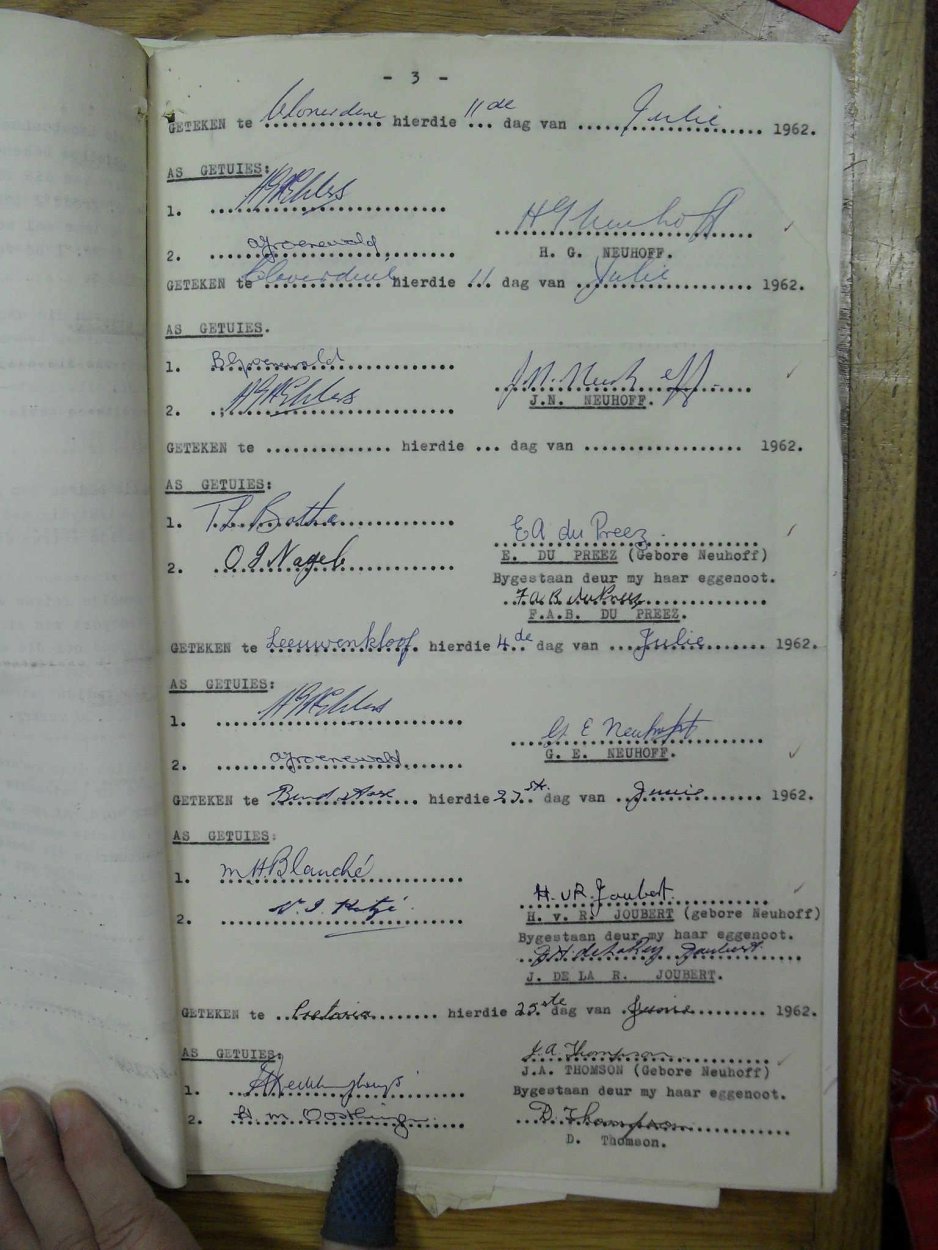 - 3 -
GETEKEN te ............ hierdie 11de dag van ..... Julie ..... 1962.
AS GETUIES:
1. H G W Ehlers
H G Neuhoff
2. A Groenewald
H. G. NEUHOFF.
GETEKEN te ............ hierdie 11 dag van ..... Julie ..... 1962.
AS GETUIES.
1. B Groenewald
J.N. Neuhoff.
2. H G W Ehlers
J.N. NEUHOFF.
GETEKEN te ............. hierdie ... dag van ................. 1962.
AS GETUIES:
1. T L Botha
E A du Preez.
E. DU PREEZ (Gebore Neuhoff)
2. O J Nagel
Bygestaan deur my haar eggenoot.
F.A.B. du Preez
F.A.B. DU PREEZ.
GETEKEN te Leeuwenkloof hierdie 4de dag van ... Julie ... 1962.
AS GETUIES:
1. H G W Ehlers
G E Neuhoff
G. E. NEUHOFF.
2. A Groenewald
GETEKEN te ............ hierdie 27ste dag van .. Junie ... 1962.
AS GETUIES:
1. M H Blanché
H. v R. Joubert
2.
H. v. R. JOUBERT (gebore Neuhoff)
Bygestaan deur my haar eggenoot.
de la Rey Joubert
J. DE LA R. JOUBERT.
GETEKEN te .. Pretoria ........ hierdie 25ste dag van . Junie ... 1962.
AS GETUIES:
J.A. Thomson
J.A. THOMSON (Gebore Neuhoff)
1.
Bygestaan deur my haar eggenoot.
2. H. M.
D. Thomson
D. Thomson.